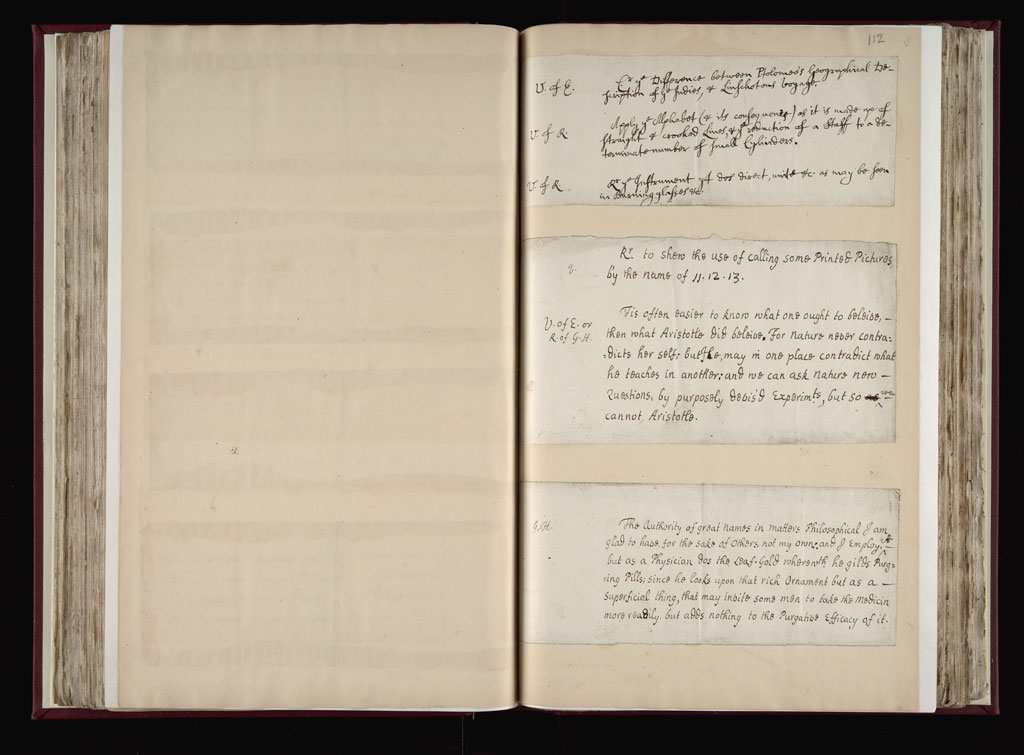 112
V. of E.
Ex. ye Difference between Ptolomeo's Geographical De-
scription of ye Indies, & Linschotens voyage.
V. of R.
Apply ye Alphabet (& its consequences) as it is made up of
straight & crooked Lines, & ye reduction of a Staff to a de-
terminate number of small Cylinders.
V. of R.
Rr. ye Instrument yt dos direct, unite &c. as may be seen
in Burning glasses &c.
Rr. to shew the use of calling some Printed Pictures
by the name of 11. 12. 13.
V. of E. or
R. of G. H.
Tis often easier to know what one ought to beleive, —
then what Aristotle did beleive. For nature never contra-
-dicts her self: but he, may in one place contradict what
he teaches in another: and we can ask nature new —
Questions, by purposely devis'd Experimts, but so we
cannot Aristotle.
G. H.
The Authority of great names in matters Philosophical I am
glad to have, for the sake of Others, not my own; and I Employ it
but as a Physician dos the Leaf-Gold wherewth he gilds Purg-
-ing Pills; since he looks upon that rich Ornament but as a —
superficial thing, that may invite some men to take the Medicin
more readily, but adds nothing to the Purgative Efficacy of it.